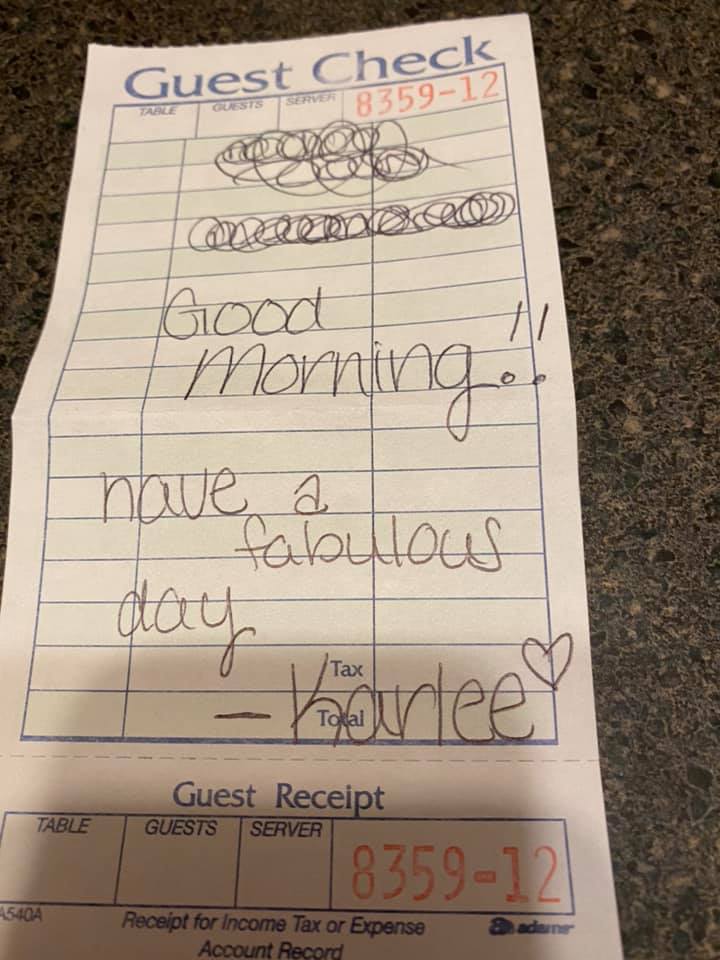 Guest Check
TABLE GUESTS SERVER 8359-12
Good
morning!!
have a
fabulous
day
Tax
— Karlee
Total
Guest Receipt
TABLE GUESTS SERVER 8359-12
A540A Receipt for Income Tax or Expense adams
Account Record